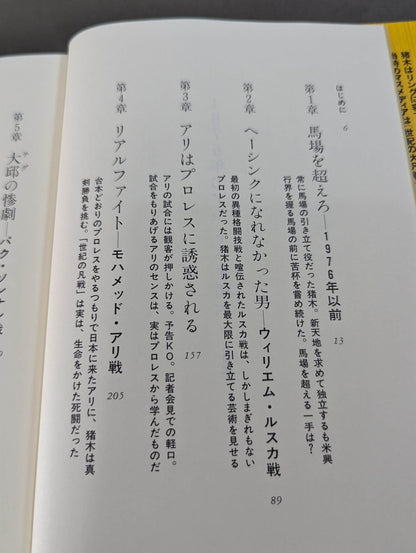 猪木はリングに
はじめに 6
第1章 馬場を超えろ──1976年以前 13
常に馬場の引き立て役だった猪木。新天地を求めて独立するも米興
行界を握る馬場の前に苦杯を嘗め続けた。馬場を超える一手は?
第2章 ヘーシンクになれなかった男──ウィリエム・ルスカ戦 89
最初の異種格闘技戦と喧伝されたルスカ戦は、しかしまぎれもない
プロレスだった。猪木はルスカを最大限に引き立てる芸術を見せる
第3章 アリはプロレスに誘惑される 157
アリの試合には観客が押しかける。予告KO。記者会見での軽口。
試合をもりあげるアリのセンスは、実はプロレスから学んだものだ
第4章 リアルファイト──モハメッド・アリ戦 205
台本どおりのプロレスをやるつもりで日本に来たアリに、猪木は真
剣勝負を挑む。「世紀の凡戦」は実は、生命をかけた死闘だった
第5章 大邱の惨劇──パク・ソンナン戦
テグ